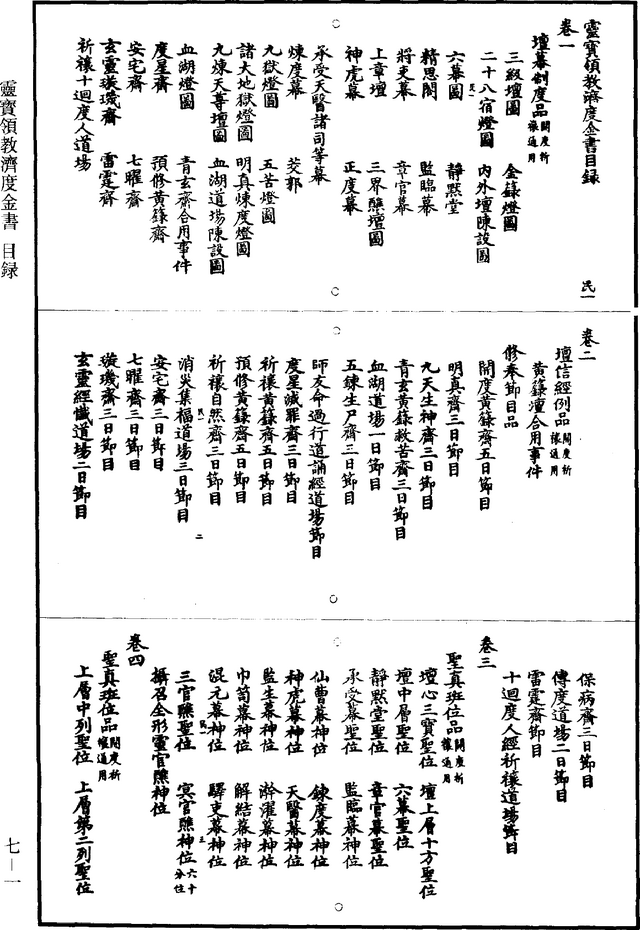 靈寶領教濟度金書目録 民一
卷一
壇幕制度品 開度祈禳通用
三級壇圖 金籙燈圖
二十八宿燈圖 内外壇陳設圖
六幕圖 靜默堂
精思閣 監臨幕
將吏幕 章官幕
上章壇 三界醮壇圖
神虎幕 正度幕
承受天醫諸司等幕
煉度幕 茭郭
九獄燈圖 五苦燈圖
諸大地獄燈圖 明真煉度燈圖
九煉天尊壇圖 血湖道場陳設圖
血湖燈圖 青玄齋合用事件
度星齋 預修黄籙齋
安宅齋 七曜齋
玄靈璇璣齋 雷霆齋
祈禳十迴度人道場
卷二
壇信經例品 開度祈禳通用
黄籙壇合用事件
修奉節目品
開度黄籙齋五日節目
明真齋三日節目
九天生神齋三日節目
青玄黄籙救苦齋三日節目
血湖道場一日節目
五鍊生尸齋三日節目
師友命過行道誦經道場節目
度星滅罪齋三日節目
祈禳黄籙齋五日節目
預修黄籙齋五日節目
祈禳自然齋三日節目
消災集福道場三日節目
安宅齋三日節目
七曜齋三日節目
璇璣齋三日節目
玄靈經懺道場二日節目
保病齋三日節目
傳度道場二日節目
雷霆齋節目
十迴度人經祈禳道場節目
卷三
聖真班位品 開度祈禳通用
壇心三寶聖位 壇上層十方聖位
壇中層聖位 六幕聖位
靜默堂聖位 章官幕聖位
承受幕聖位 監臨幕神位
仙曹幕神位 鍊度幕神位
神虎幕神位 天醫幕神位
監生幕神位 澣濯幕神位
巾笥幕神位 解結幕神位
混元幕神位 驛吏幕神位
三官醮聖位 冥官醮神位 六十分位
攝召全形靈官醮神位
卷四
聖真班位品 開度祈禳通用
上層中列聖位 上層第二列聖位
靈寶領教濟度金書 目録
七—一